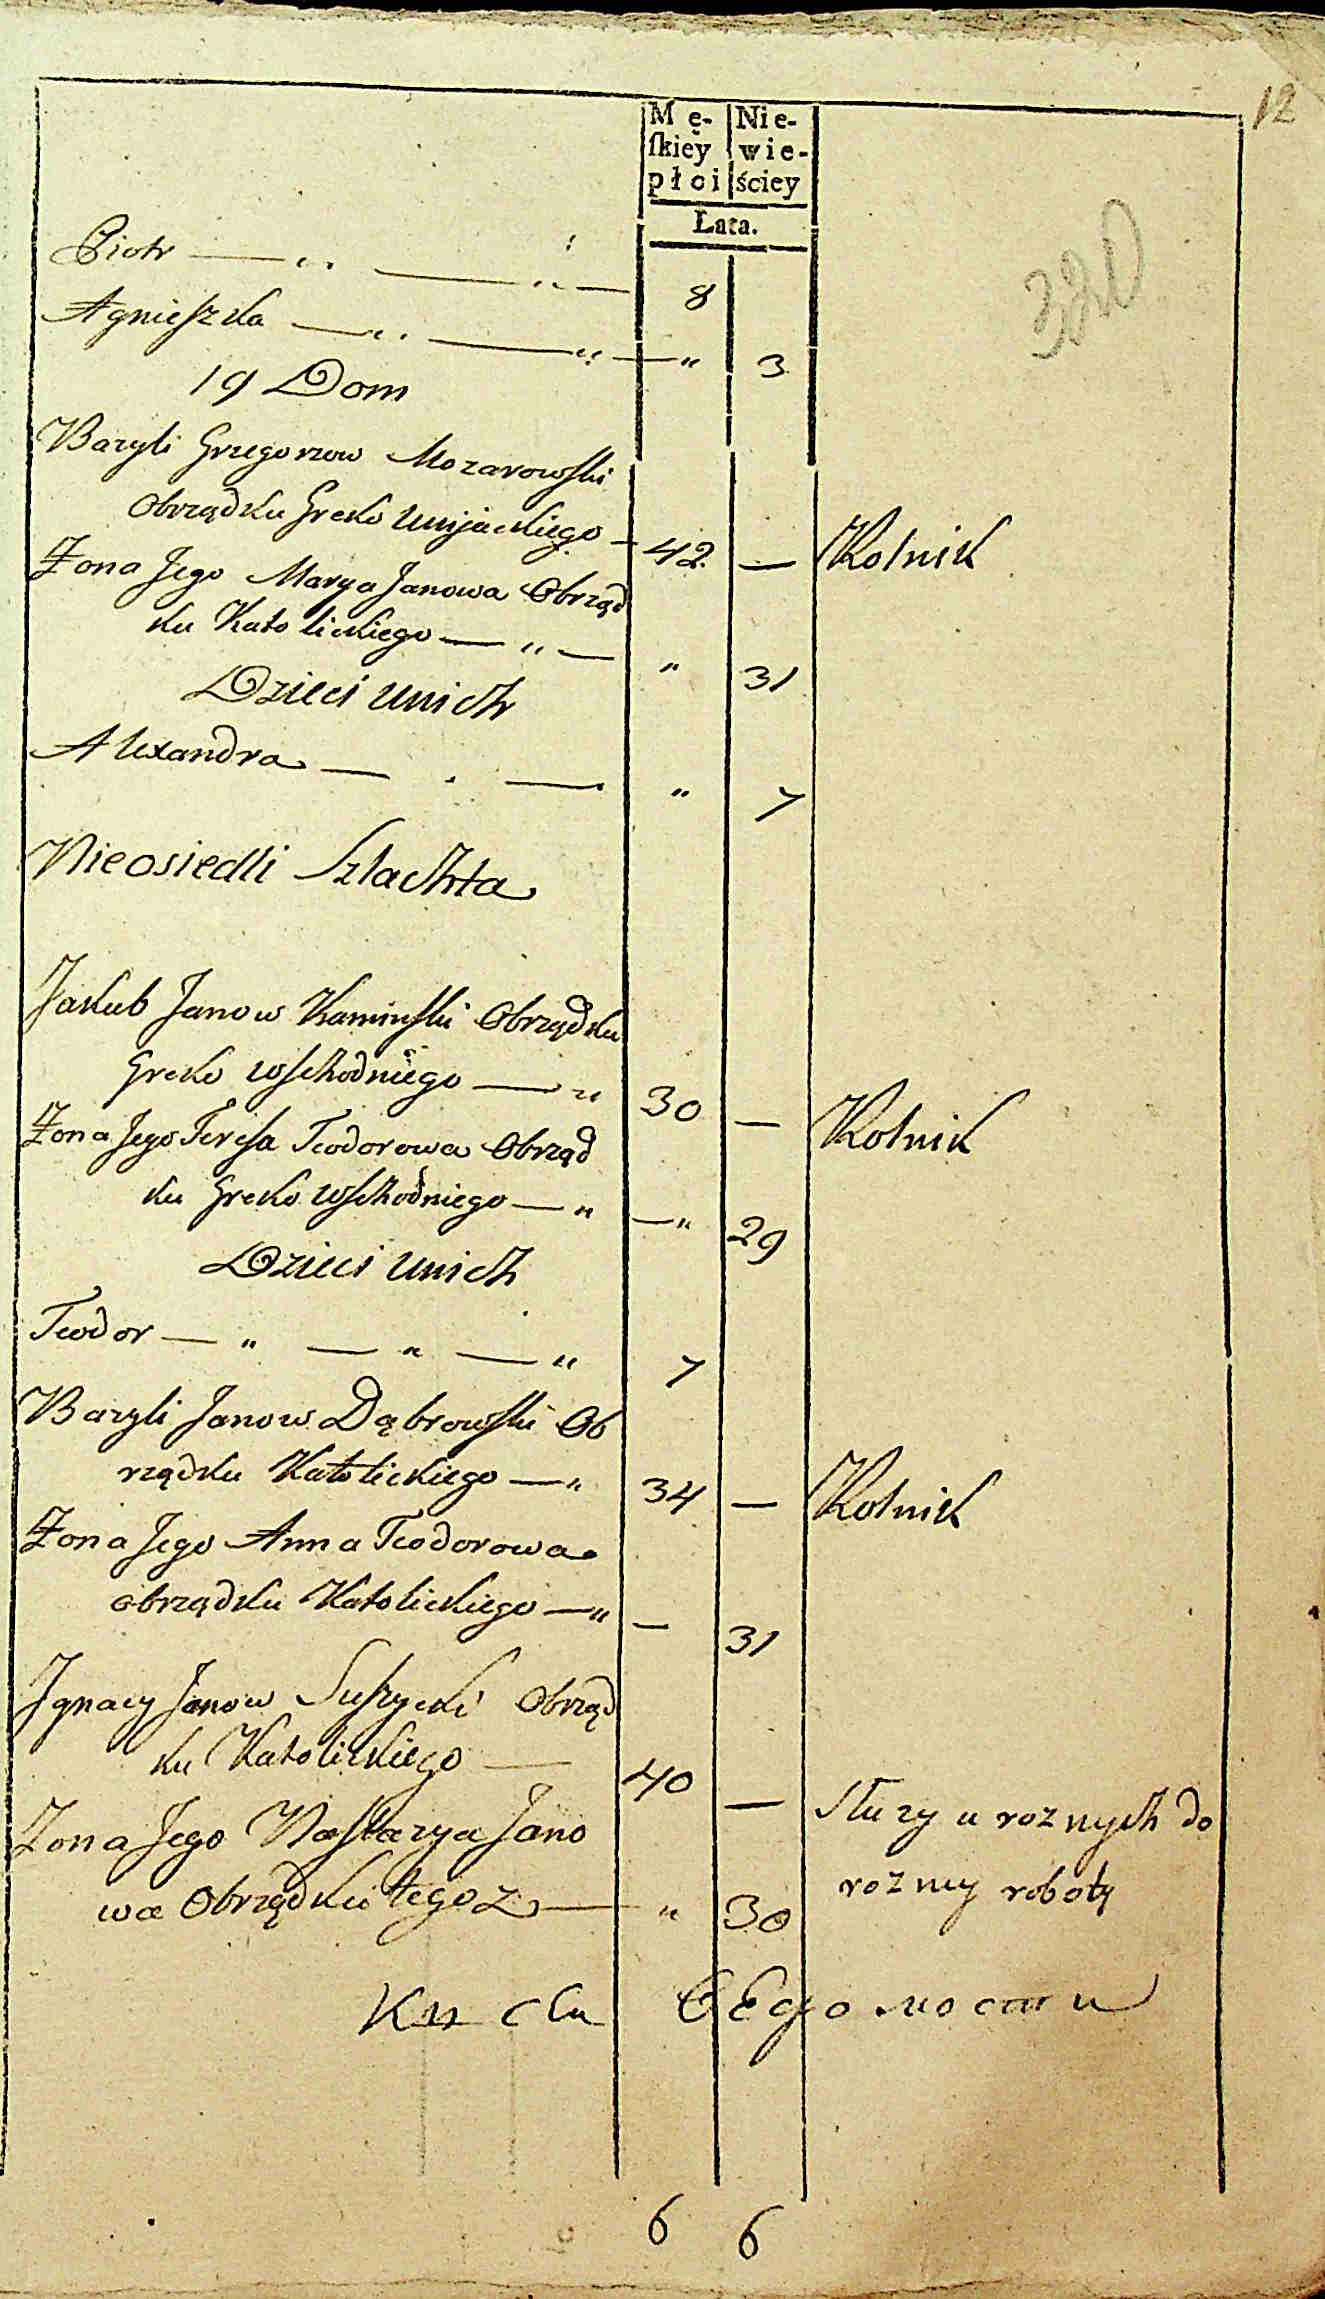 12
Mę- Nie-
ſkiey wie-
płci ściey
Lata.
320
Piotr — „ — „ — 8
Agnieszka — „ — „ — „ 3
19 Dom
Bazyli Grzegorzow Mozarowski
Obrządku Greko Unijackiego — 42 — Rolnik
Żona Jego Marya Janowa Obrząd
ku Katolickiego — „ — „ 31
Dzieci Unich
Alexandra — . — . „ 7
Nieosiedli Szlachta
Jakub Janow Kaminski Obrządku
Greko Wschodniego — „ 30 — Rolnik
Żona Jego Teresa Teodorowa Obrząd
ku Greko Wschodniego — „ — „ 29
Dzieci Unich
Teodor — „ — „ — „ 7
Bazyli Janow Dąbrowski Ob
rządku Katolickiego — „ 34 — Rolnik
Żona Jego Anna Teodorowa
obrządku Katolickiego — „ — 31
Jgnacy Janow Suszycki Obrząd
ku Katolickiego — 40 — Słuzy u roznych do
Zona Jego Nastazya Jano
rozney roboty
wa Obrządku tegoz — „ 30
6 6